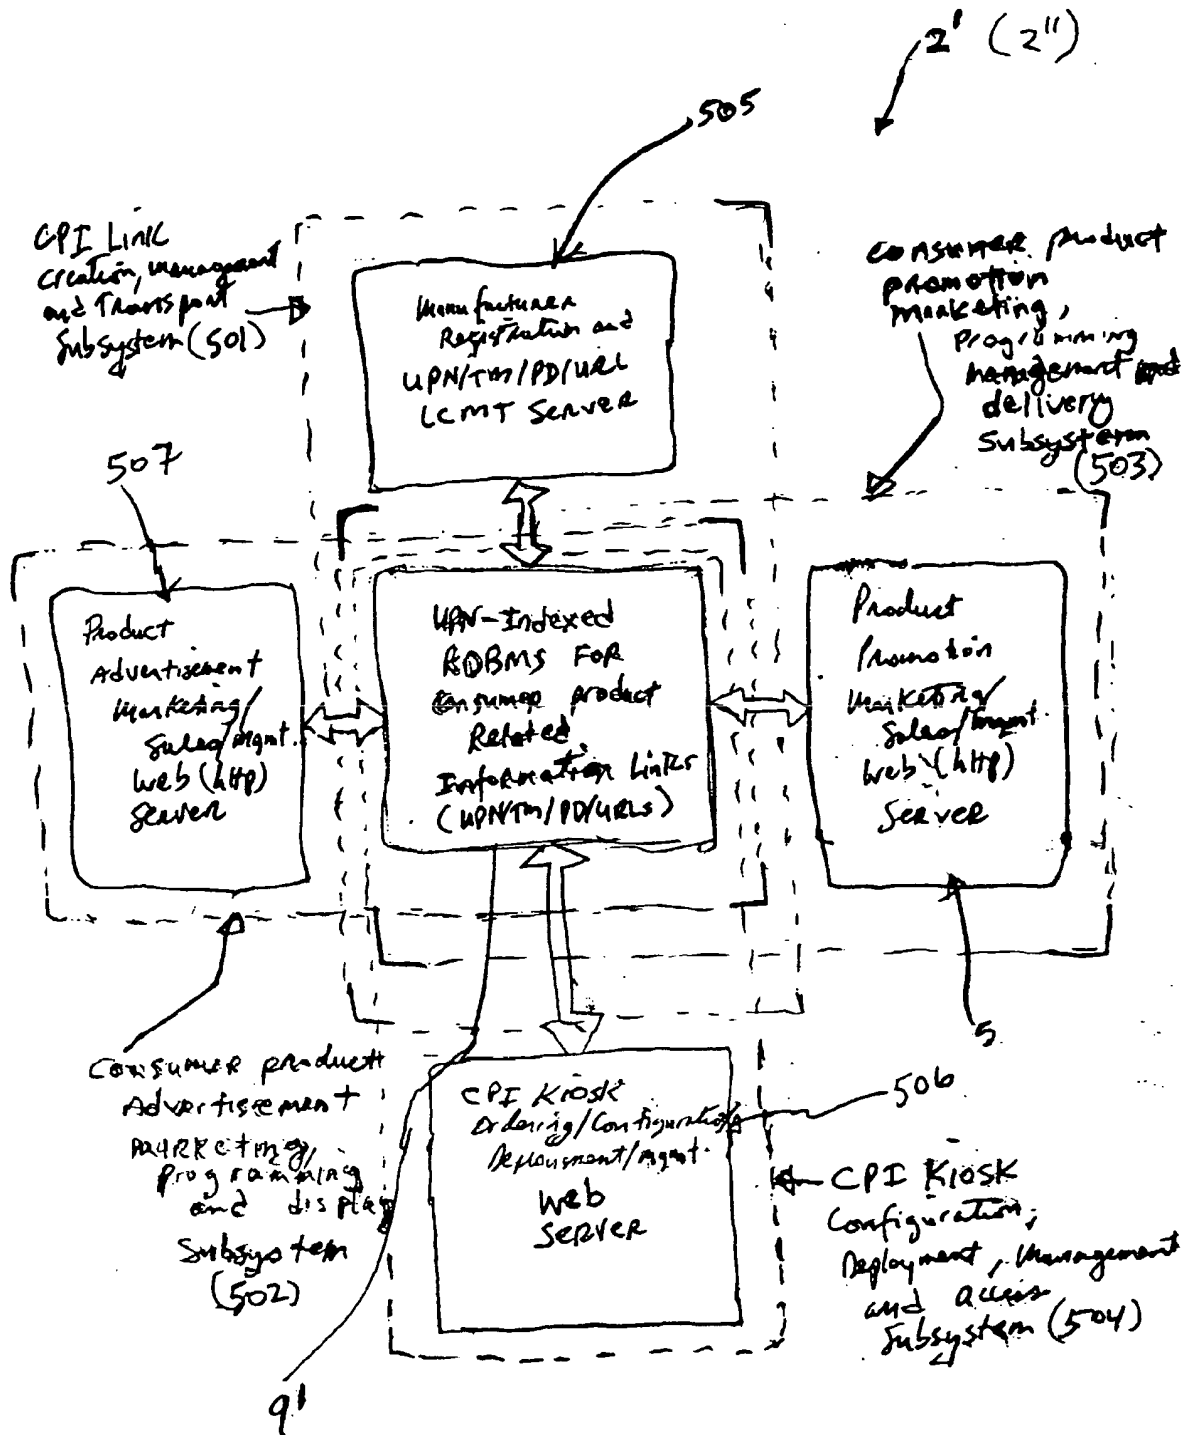 2' (2'')
505
CPI Link
Creation, management
and Transport
Subsystem (501)
Manufacturer
Registration and
UPN/TM/PD/URL
LCMT Server
Consumer product
promotion
marketing,
programming
management and
delivery
Subsystem
(503)
507
Product
Advertisement
Marketing/
Sales/mgmt.
Web (http)
Server
UPN-Indexed
RDBMS FOR
Consumer product
Related
Information Links
(UPN/TM/PD/URLs)
Product
Promotion
Marketing/
Sales/mgmt.
Web (http)
Server
5
Consumer product
Advertisement
Marketing,
programming
and display
Subsystem
(502)
CPI Kiosk
Ordering/Configuration/
Deployment/mgmt.
Web
Server
506
CPI Kiosk
Configuration,
Deployment, Management
and access
Subsystem (504)
9'